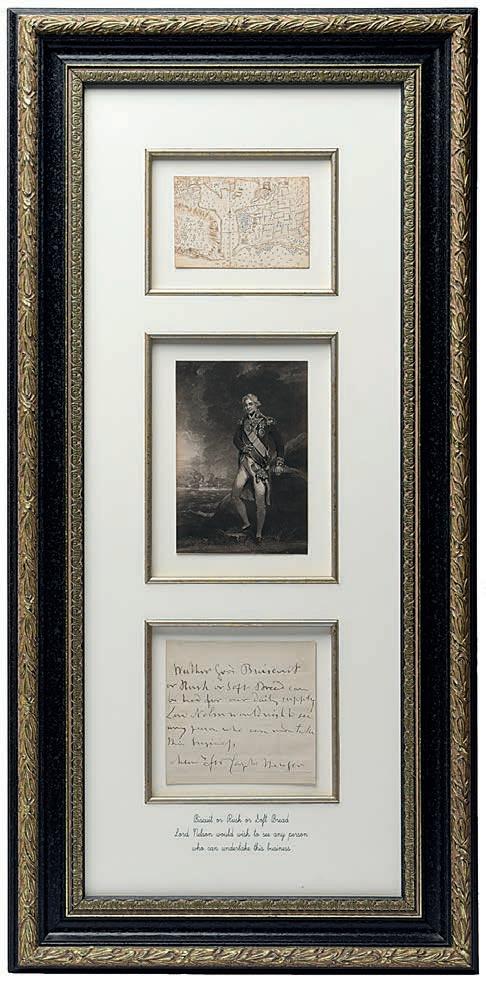 Biscuit
or Rusk or Soft Bread can
be had for our daily supply
Lord Nelson would wish to see
any person who can undertake
this business,
Biscuit or Rusk or Soft Bread
Lord Nelson would wish to see any person
who can undertake this business